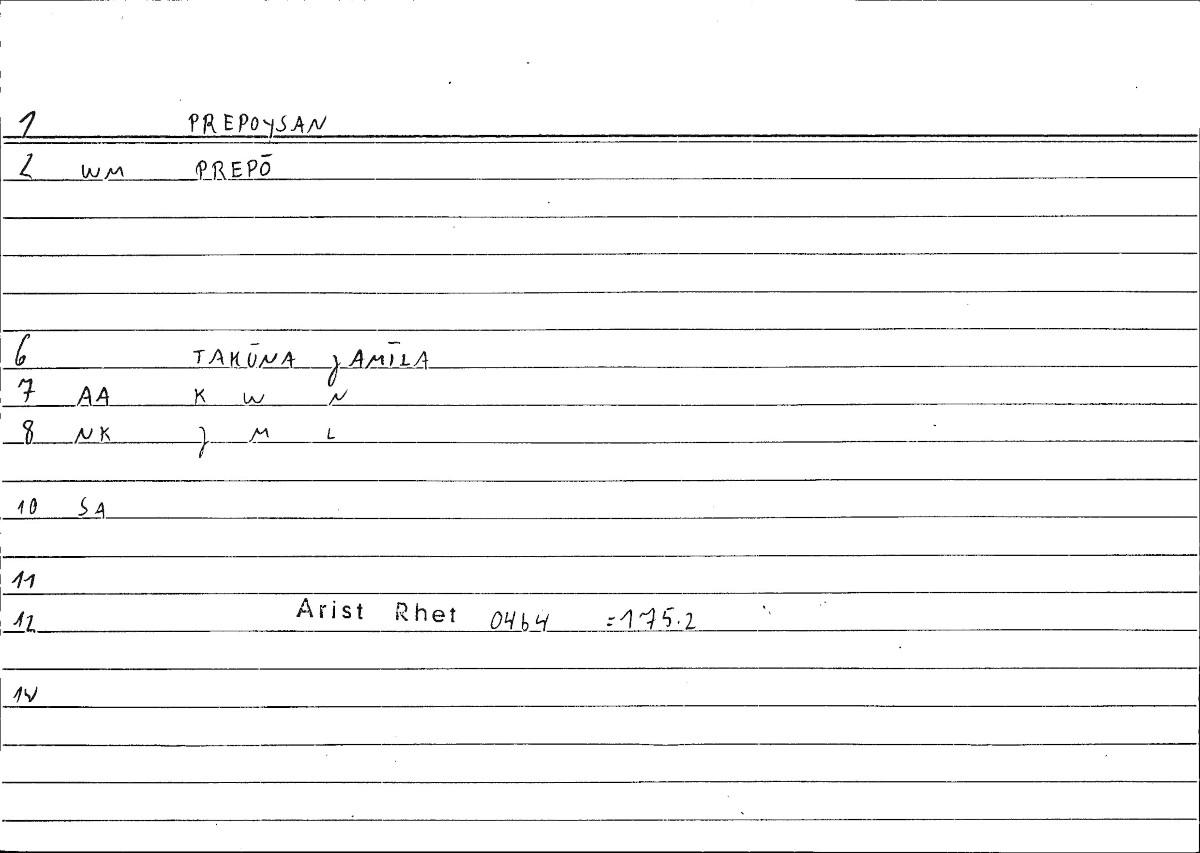 1 PREPOYSAN
2 WM PREPŌ
6 TAKŪNA JAMĪLA
7 AA K W N
8 NK J M L
10 SA
11
12 Arist Rhet 0464 =175.2
14